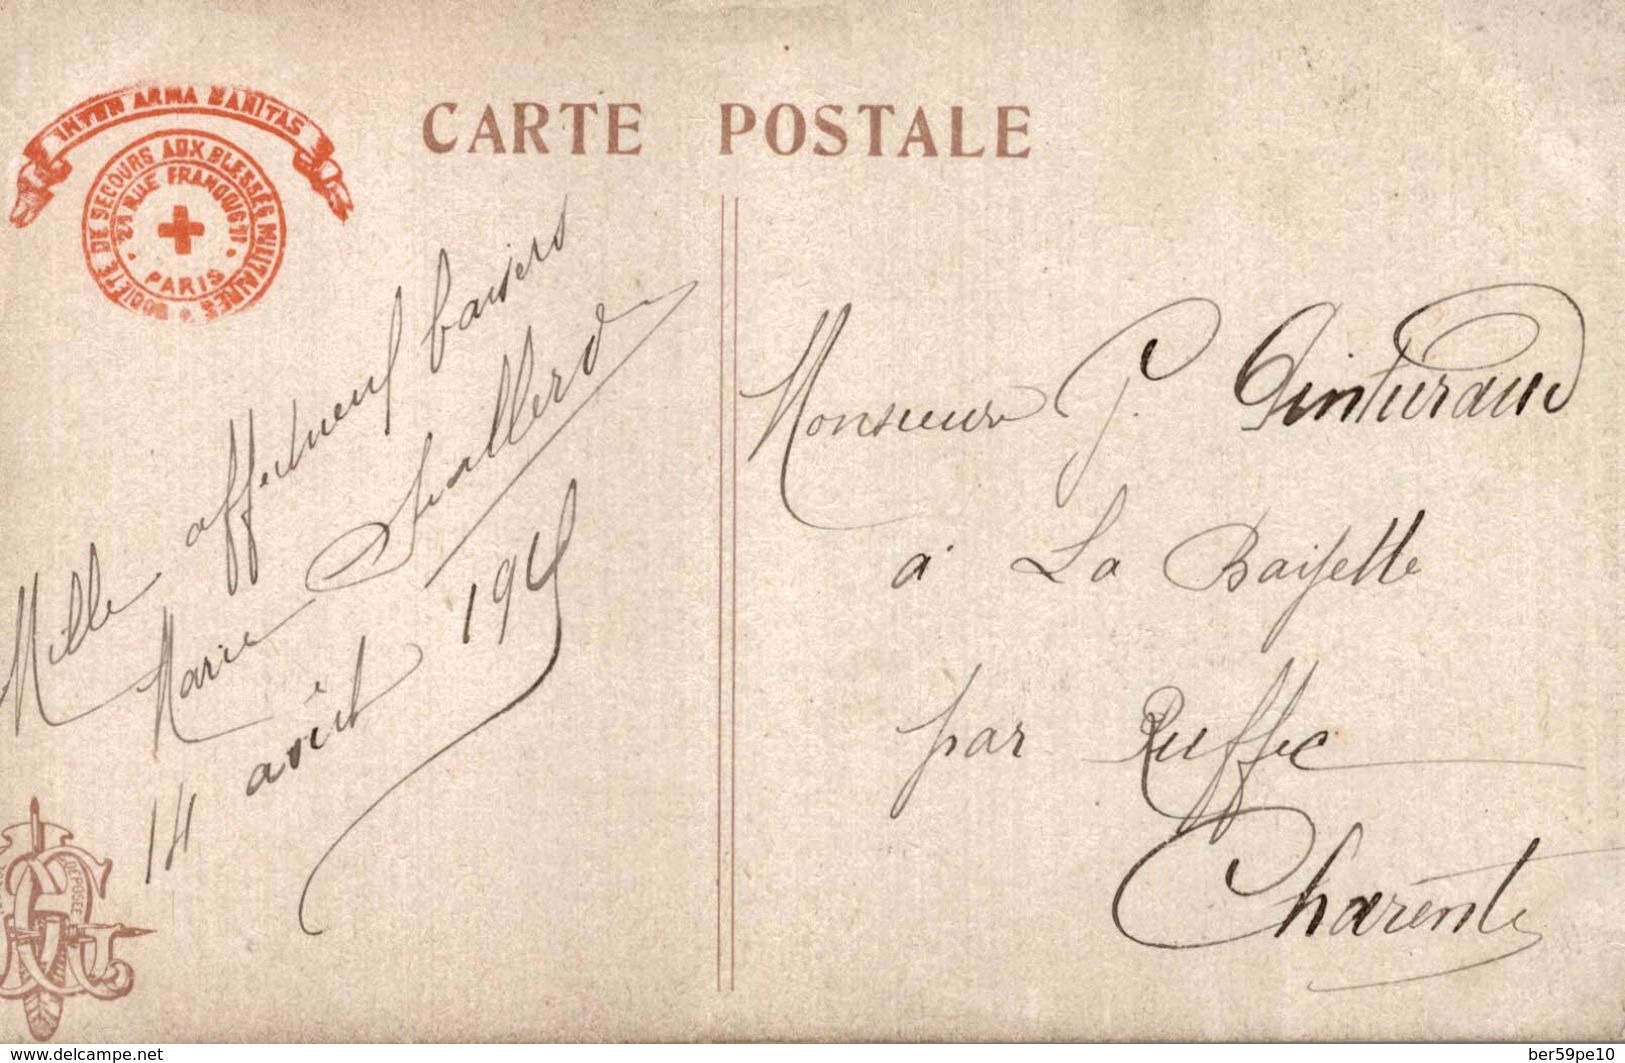 CARTE POSTALE
INTER ARMA CARITAS
SOCIÉTÉ DE SECOURS AUX BLESSÉS MILITAIRES
21 RUE FRANÇOIS 1er
PARIS
Mille affectueux baisers
Marie
14 août 1915
Monsieur P.
à La Baisette
par Ruffec
Charente
DÉPOSÉE
www.delcampe.net
ber59pe10